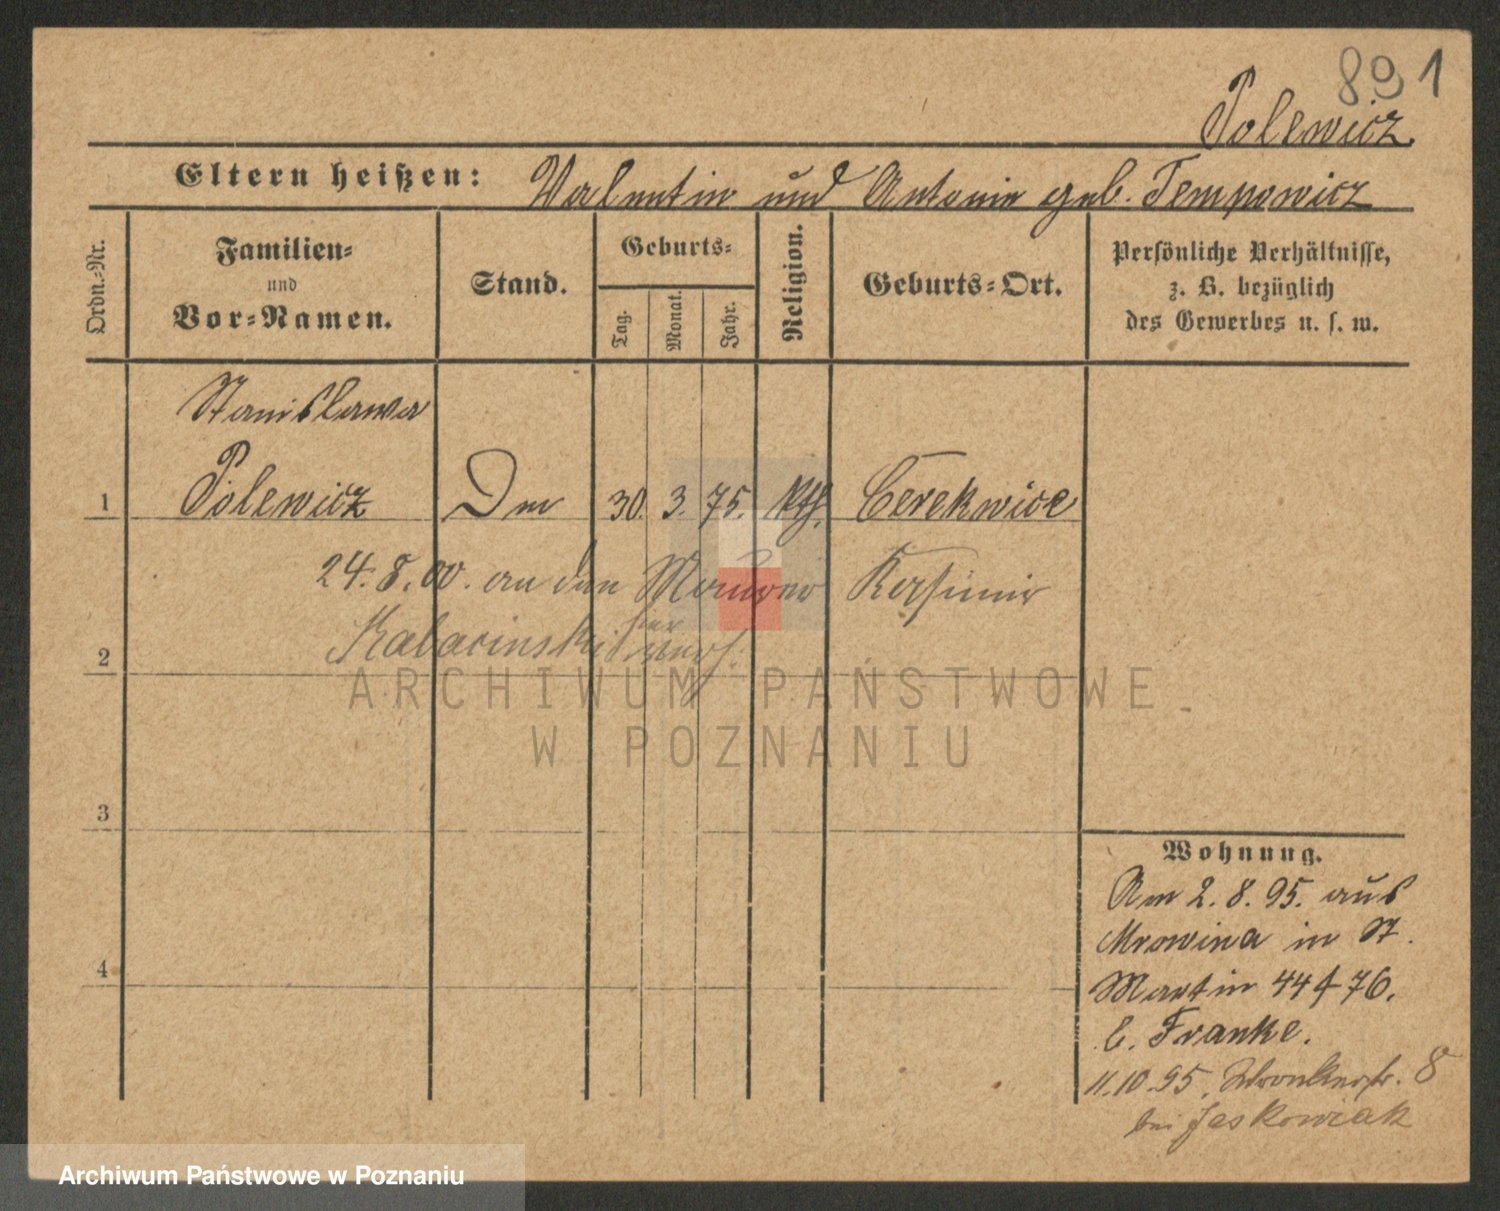 891
Polewicz
Eltern heißen: Valentin und Antonie geb. Tempowicz
Ordn.-Nr.
Familien-
und
Vor-Namen.
Stand.
Geburts-
Tag.
Monat.
Jahr.
Religion.
Geburts-Ort.
Persönliche Verhältnisse,
z. B. bezüglich
des Gewerbes u. s. w.
Stanislawa
1 Polewicz 30. 3. 75. kth. Cerekwice
24. 8. 00. an den Maurer Kasimir
2 hier verh.
3
4
Wohnung.
Am 2. 8. 95. aus
Mrowina in St.
Martin 44 f 76.
b. Franke.
11.10.95. Wronkerstr. 8
bei Jaskowiak
ARCHIWUM PAŃSTWOWE
W POZNANIU
Archiwum Państwowe w Poznaniu